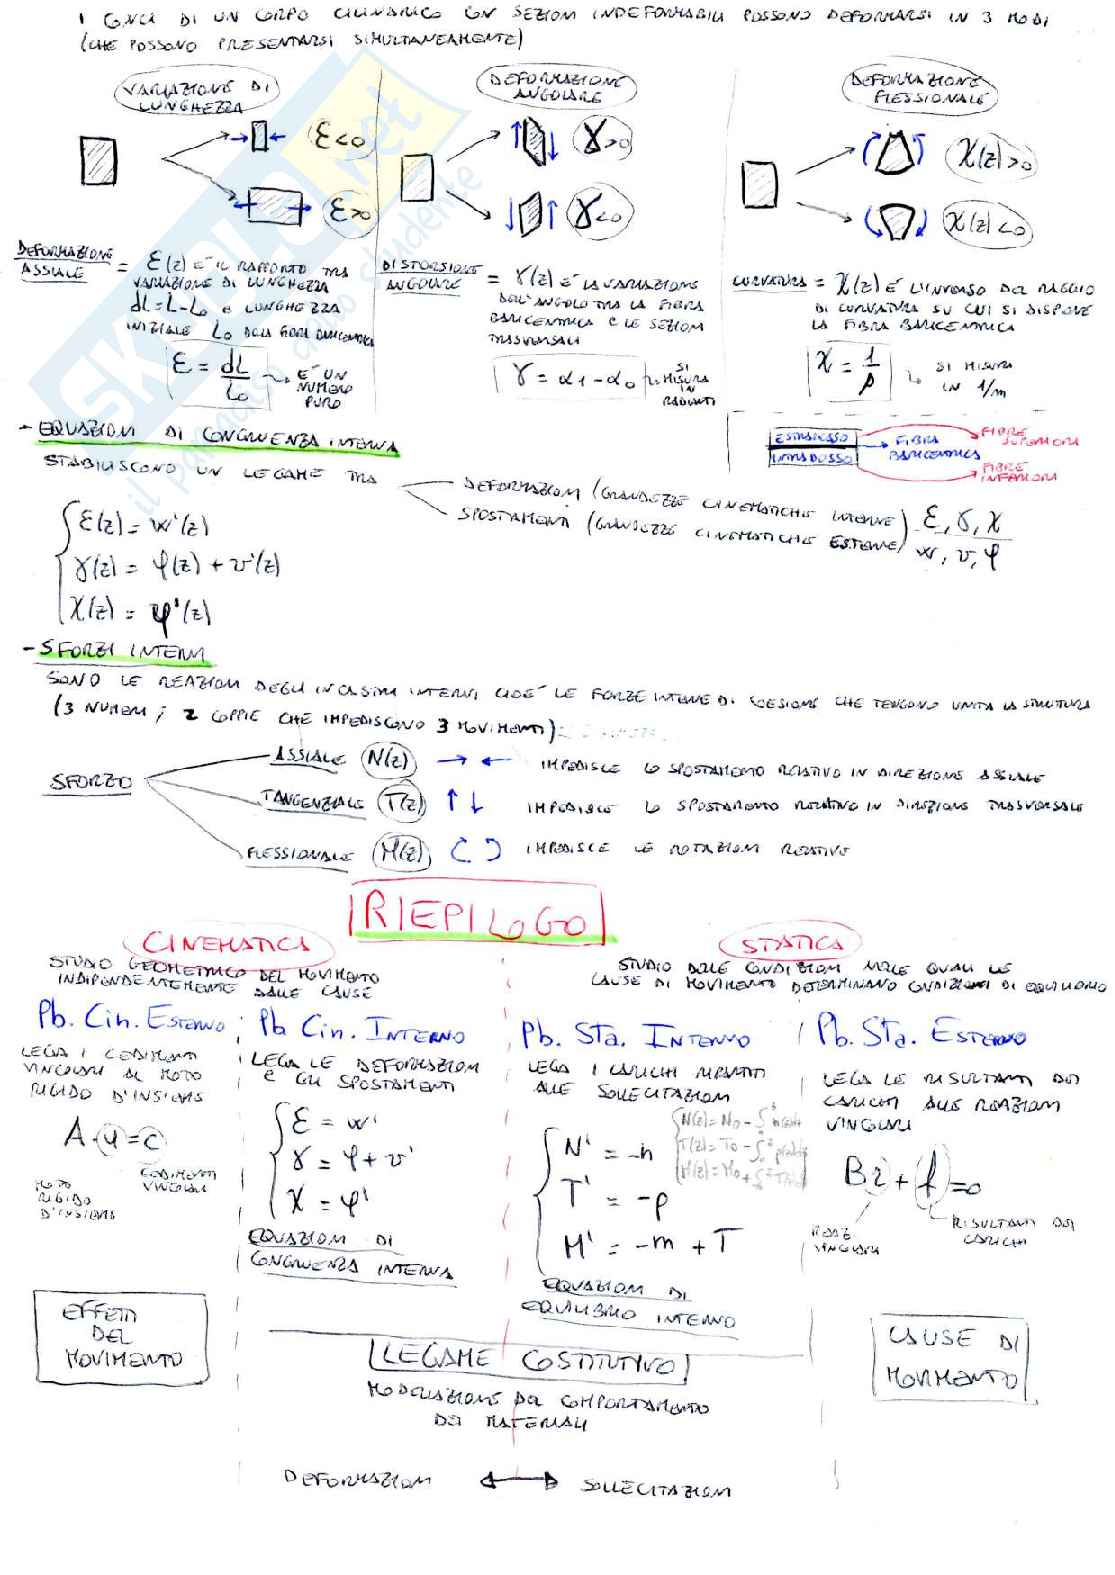 I CONCI DI UN CORPO CILINDRICO CON SEZIONI INDEFORMABILI POSSONO DEFORMARSI IN 3 MODI
(CHE POSSONO PRESENTARSI SIMULTANEAMENTE)
VARIAZIONE DI
LUNGHEZZA
ε<0
ε>0
DEFORMAZIONE
ASSIALE = ε(z) E' IL RAPPORTO TRA
VARIAZIONE DI LUNGHEZZA
dL=L-L₀ E LUNGHEZZA
INIZIALE L₀ DELLA FIBRA BARICENTRICA
ε = dL/L₀ → E' UN
NUMERO
PURO
DEFORMAZIONE
ANGOLARE
γ>0
γ<0
DISTORSIONE
ANGOLARE = γ(z) E' LA VARIAZIONE
DELL'ANGOLO TRA LA FIBRA
BARICENTRICA E LE SEZIONI
TRASVERSALI
γ = α₁-α₀ → SI
MISURA
IN
RADIANTI
DEFORMAZIONE
FLESSIONALE
χ(z)>0
χ(z)<0
CURVATURA = χ(z) E' L'INVERSO DEL RAGGIO
DI CURVATURA SU CUI SI DISPONE
LA FIBRA BARICENTRICA
χ = 1/ρ → SI MISURA
IN 1/m
ESTRADOSSO
INTRADOSSO
FIBRE
SUPERIORI
FIBRA
BARICENTRICA
FIBRE
INFERIORI
- EQUAZIONI DI CONGRUENZA INTERNA
STABILISCONO UN LEGAME TRA
DEFORMAZIONI (GRANDEZZE CINEMATICHE INTERNE) ε, γ, χ
SPOSTAMENTI (GRANDEZZE CINEMATICHE ESTERNE) w, v, φ
ε(z) = w'(z)
γ(z) = φ(z) + v'(z)
χ(z) = φ'(z)
- SFORZI INTERNI
SONO LE REAZIONI DEGLI INCASTRI INTERNI CIOE' LE FORZE INTERNE DI COESIONE CHE TENGONO UNITA LA STRUTTURA
(3 NUMERI; 2 COPPIE CHE IMPEDISCONO 3 MOVIMENTI):
SFORZO
ASSIALE N(z) → ← IMPEDISCE LO SPOSTAMENTO RELATIVO IN DIREZIONE ASSIALE
TANGENZIALE T(z) ↑ ↓ IMPEDISCE LO SPOSTAMENTO RELATIVO IN DIREZIONE TRASVERSALE
FLESSIONALE M(z) IMPEDISCE LE ROTAZIONI RELATIVE
RIEPILOGO
CINEMATICA
STUDIO GEOMETRICO DEL MOVIMENTO
INDIPENDENTEMENTE DALLE CAUSE
STATICA
STUDIO DELLE CONDIZIONI NELLE QUALI LE
CAUSE DI MOVIMENTO DETERMINANO CONDIZIONI DI EQUILIBRIO
Pb. Cin. ESTERNO
LEGA I CEDIMENTI
VINCOLARI AL MOTO
RIGIDO D'INSIEME
A·u=c
MOTO
RIGIDO
D'INSIEME
CEDIMENTI
VINCOLARI
Pb Cin. INTERNO
LEGA LE DEFORMAZIONI
E GLI SPOSTAMENTI
ε = w'
γ = φ + v'
χ = φ'
EQUAZIONI DI
CONGRUENZA INTERNA
Pb. Sta. INTERNO
LEGA I CARICHI RIPARTITI
ALLE SOLLECITAZIONI
N' = -n
T' = -p
M' = -m + T
EQUAZIONI DI
EQUILIBRIO INTERNO
Pb. Sta. ESTERNO
LEGA LE RISULTANTI DEI
CARICHI ALLE REAZIONI
VINCOLARI
Br + f = 0
REAZ
VINCOLARI
RISULTANTI DEI
CARICHI
EFFETTI
DEL
MOVIMENTO
LEGAME COSTITUTIVO
MODELLAZIONE DEL COMPORTAMENTO
DEI MATERIALI
CAUSE DI
MOVIMENTO
DEFORMAZIONI ↔ SOLLECITAZIONI
SKUOLA.net
il paradiso dello studente